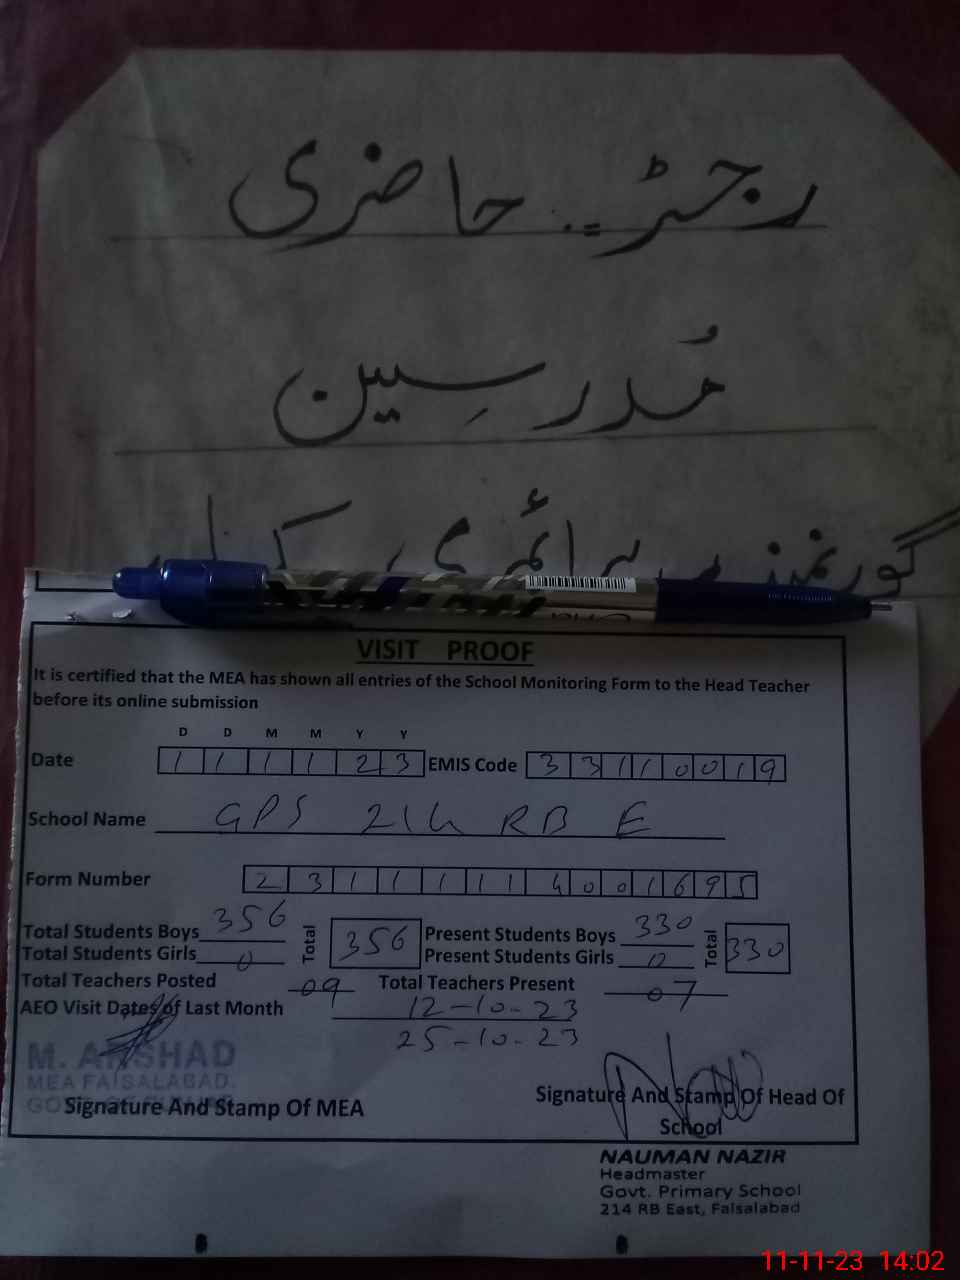 رجسٹر حاضری
مُدرسین
گورنمنٹ پرائمری
VISIT PROOF
It is certified that the MEA has shown all entries of the School Monitoring Form to the Head Teacher
before its online submission
D D M M Y Y
Date 1 1 1 1 2 3 EMIS Code 3 3 1 1 0 0 1 9
School Name GPS 214 RB E
Form Number 2 3 1 1 1 1 1 4 0 0 1 6 9 5
Total Students Boys 356 Total 356 Present Students Boys 330 Total 330
Total Students Girls 0 Present Students Girls 0
Total Teachers Posted 09 Total Teachers Present 07
AEO Visit Dates of Last Month 12-10-23
25-10-23
M. ARSHAD
MEA FAISALABAD.
Signature And Stamp Of MEA
Signature And Stamp Of Head Of
School
NAUMAN NAZIR
Headmaster
Govt. Primary School
214 RB East, Faisalabad
11-11-23 14:02